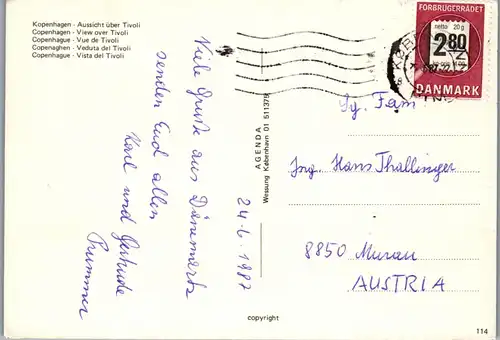 Kopenhagen - Aussicht über Tivoli
Copenhagen - View over Tivoli
Copenhague - Vue de Tivoli
Copenaghen - Veduta del Tivoli
Copenhague - Vista del Tivoli
Viele Grüße aus Dänemark
senden Eud allen
Karl und Gertrude
Prummer
24-6-1987
AGENDA
Wessung København 01 511379
copyright
FORBRUGERRÅDET
netto 20 g
2 80
DANMARK
Sg. Fam
Ing. Hans Thallinger
8850 Murau
AUSTRIA
114